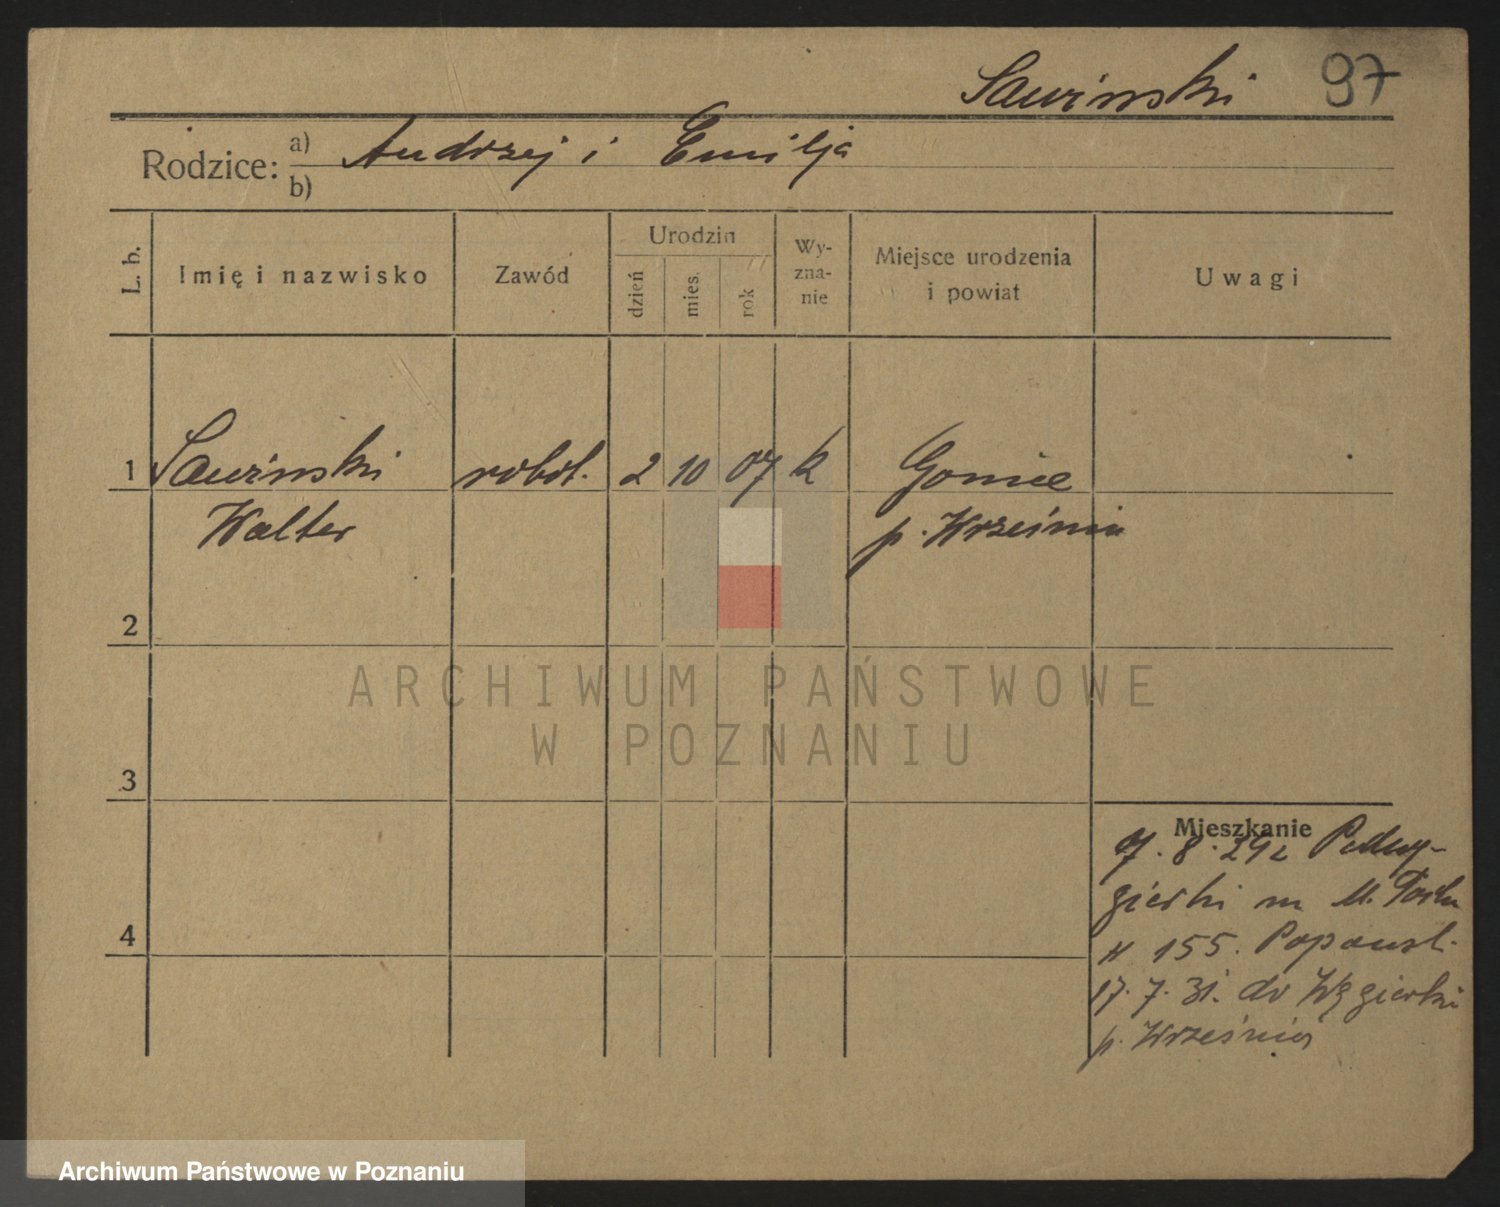 Sawinski 97
Rodzice: a) Andrzej i Emilja
b)
L. b. Imię i nazwisko Zawód Urodzin dzień mies. rok Wy-zna-nie Miejsce urodzenia i powiat Uwagi
1 Sawinski robot. 2 10 07 k Gonice
Walter p. Września
2
3
Mieszkanie
7. 8. 29 z Podwę-
gierki m
4
155.
17. 7. 31. do Węgierki
p. Września
ARCHIWUM PAŃSTWOWE
W POZNANIU
Archiwum Państwowe w Poznaniu